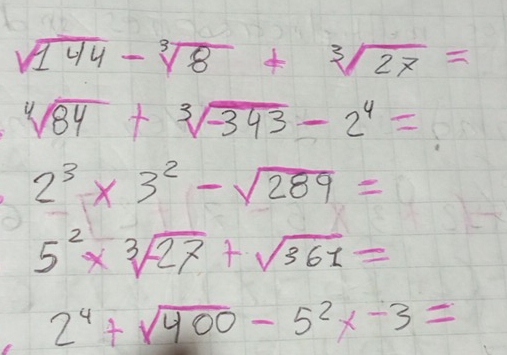 √144 - ∛8 + ∛27 =
∜84 + ∛-343 - 2⁴ =
2³ × 3² - √289 =
5² × ∛-27 + √361 =
2⁴ + √400 - 5² × -3 =